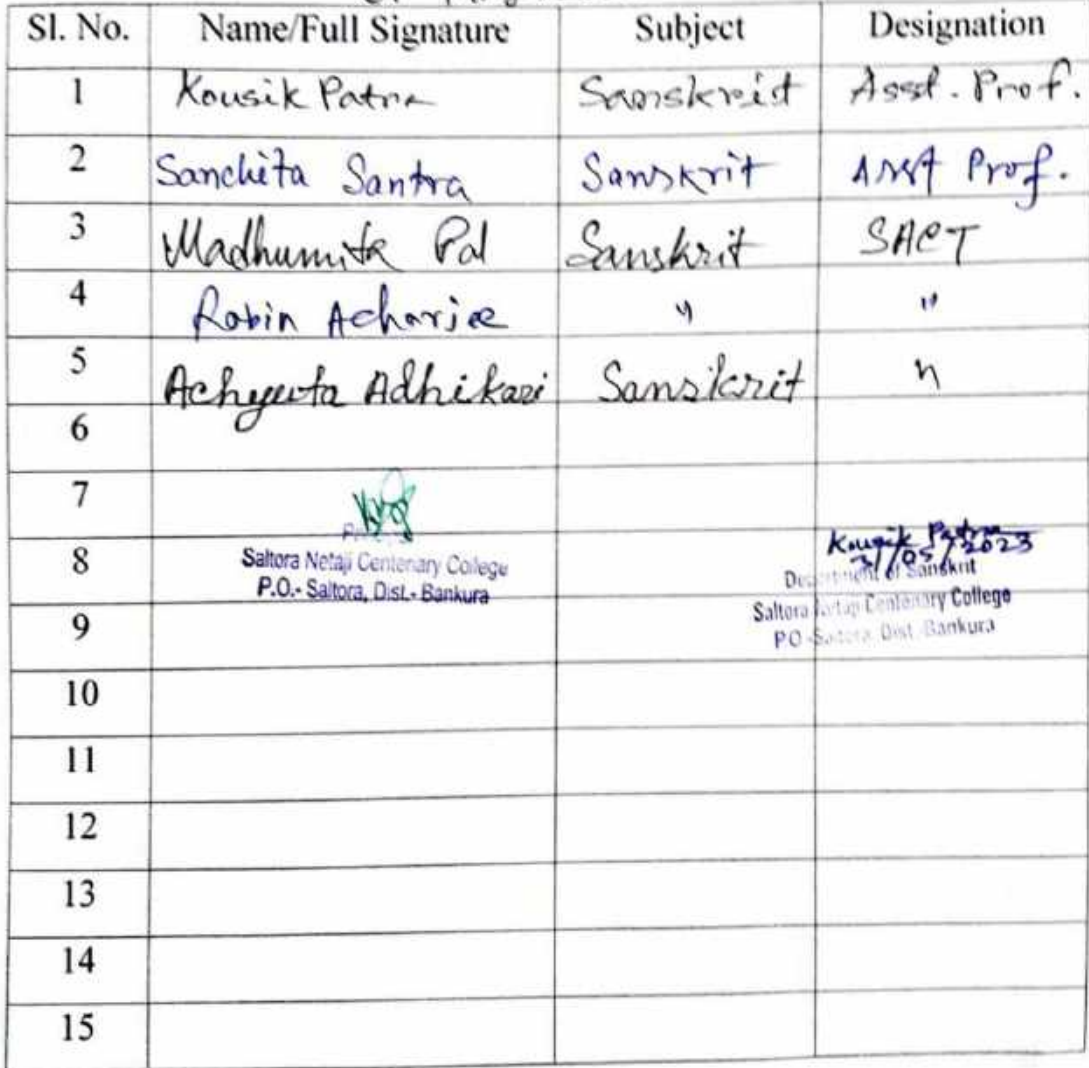 Sl. No. Name/Full Signature Subject Designation
1 Kousik Patra Sanskreit Asst. Prof.
2 Sanchita Santra Sanskrit Asst Prof.
3 Madhumita Pal Sanskrit SACT
4 Robin Acharjee " "
5 Achyuta Adhikari Sanskrit "
6
7
8
Saltora Netaji Centenary College
P.O.- Saltora, Dist.- Bankura
Kousik Patra
31/05/2023
Department of Sanskrit
Saltora Netaji Centenary College
P.O.-Saltora, Dist.-Bankura
9
10
11
12
13
14
15